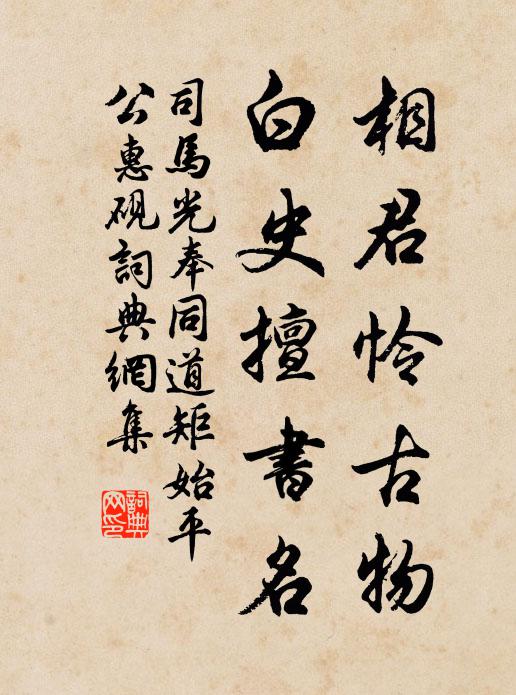 相君怜古物
白史擅書名
司馬光奉同道矩始平
公惠硯詞典網集
詞典网印